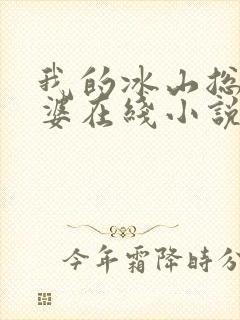 我的冰山总
婆在线小説
今年霜降時分